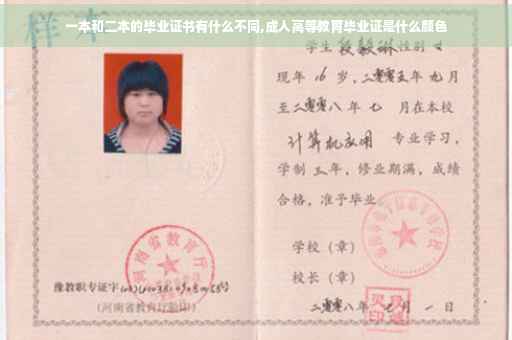 样本
一本和二本的毕业证书有什么不同,成人高等教育毕业证是什么颜色
学生 段毅琳 性别 女
现年 16 岁，二零零五年 九月
至二零零八年 七 月在本校
计算机应用 专业学习，
学制 三 年，修业期满，成绩
合格，准予毕业
学校（章）
校长（章）
二零零八年 七 月 一 日
河南省教育厅
豫教职专证字
（河南省教育厅验印）